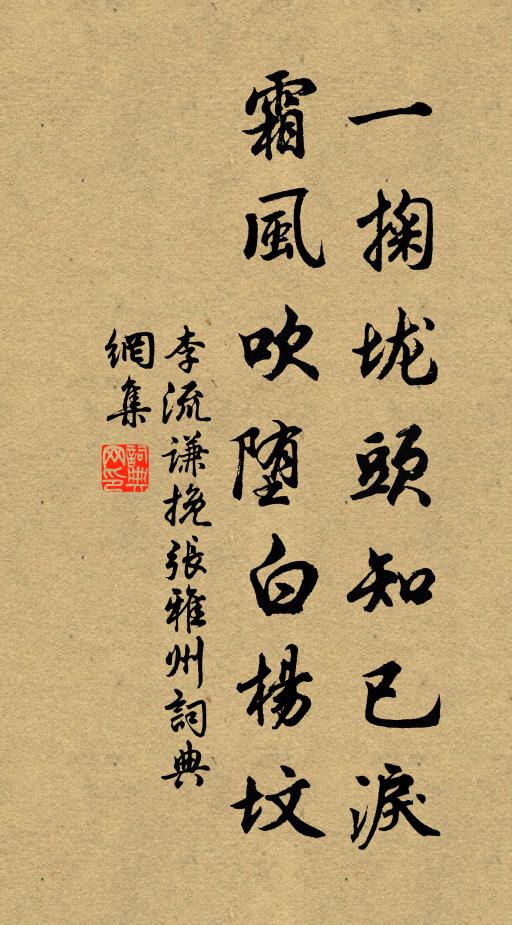 一掬垅頭知已淚
霜風吹堕白楊坟
李流谦挽張雅州詞典
網集
詞典網印